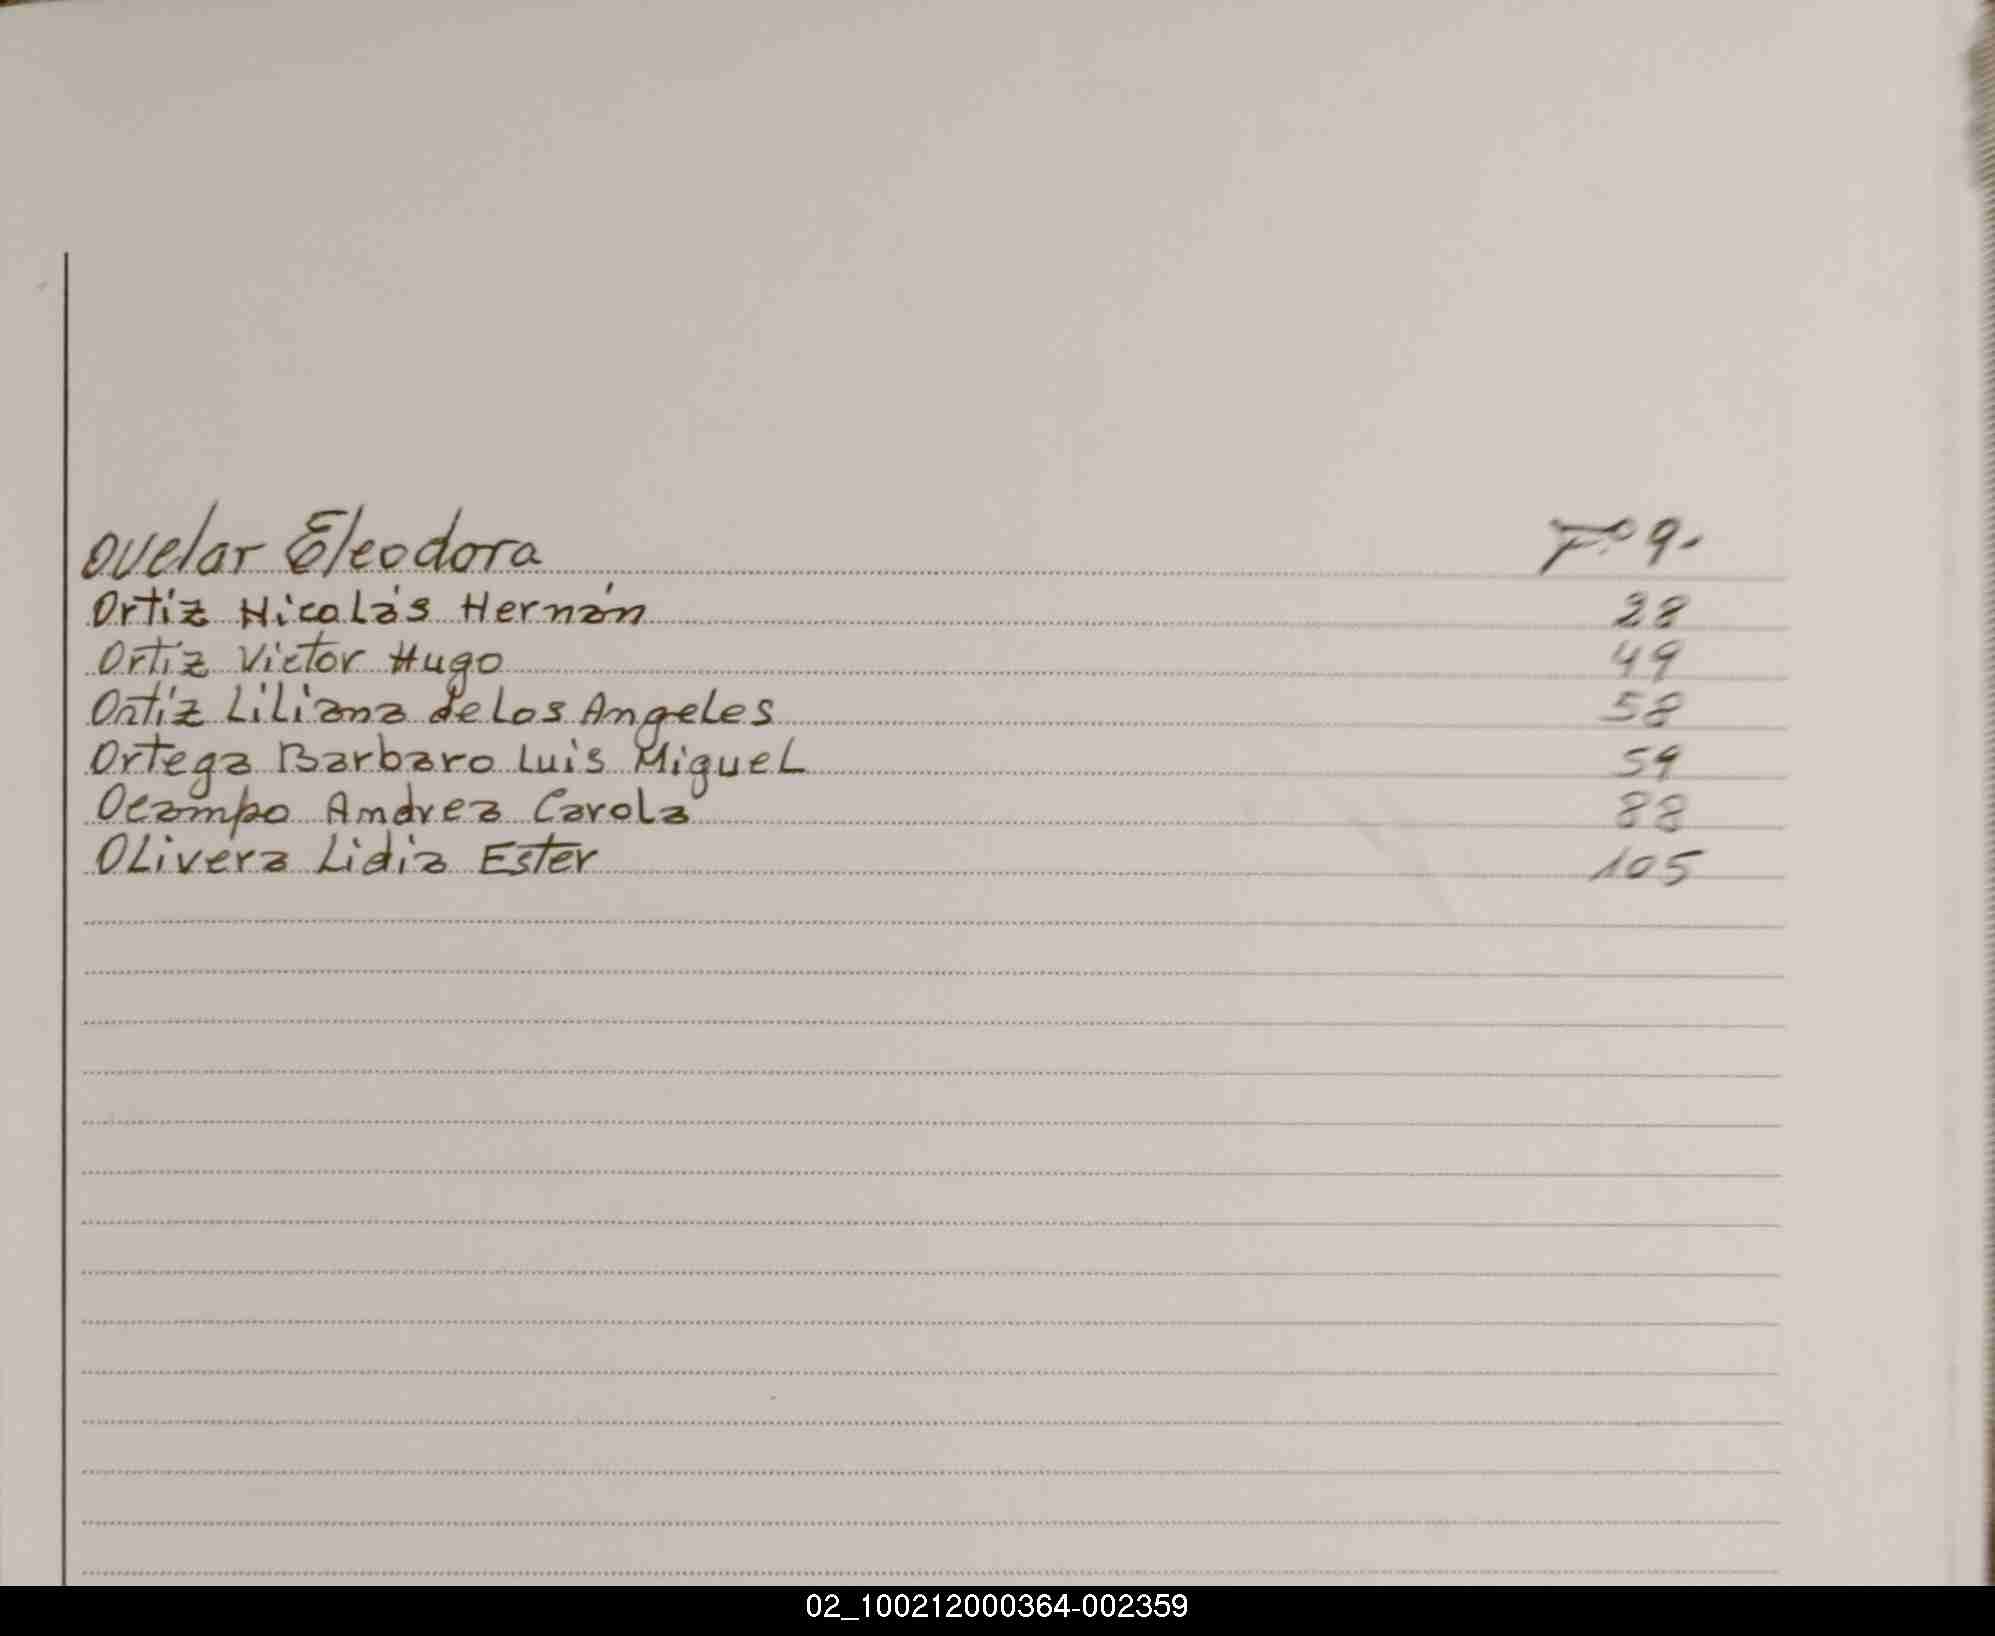 Ovelar Eleodora Fº 9.
Ortiz Nicolás Hernán 28
Ortiz Victor Hugo 49
Ortiz Liliana de Los Angeles 58
Ortega Barbaro Luis Miguel 59
Ocampo Andrea Carola 88
Olivera Lidia Ester 105
02_100212000364-002359